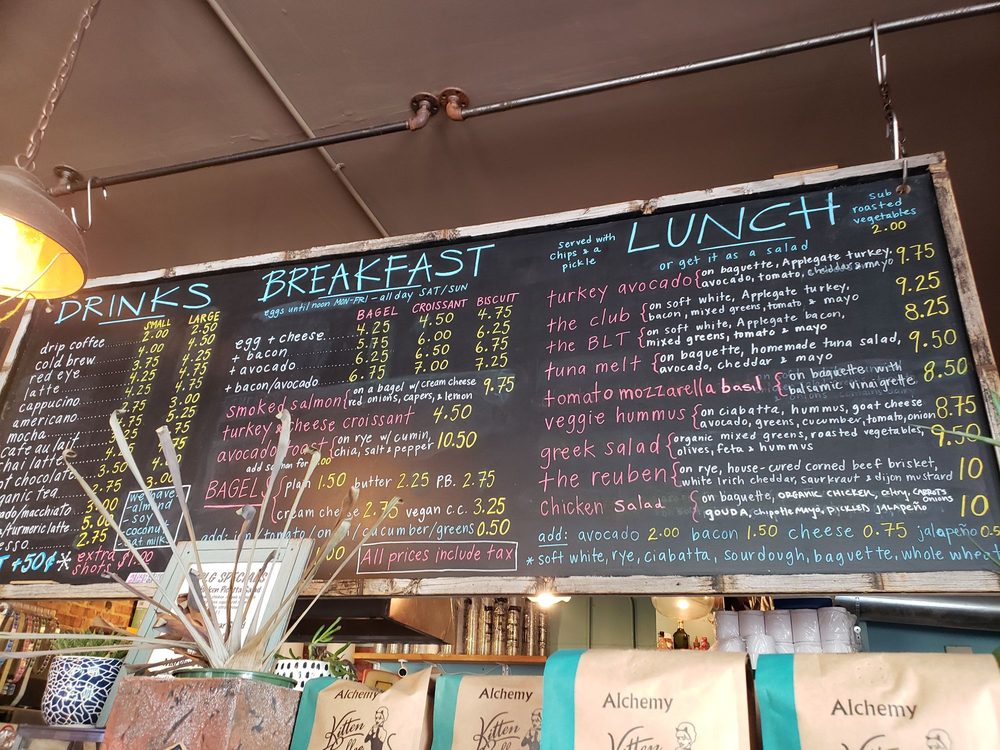 DRINKS
SMALL LARGE
drip coffee 2.00 2.50
cold brew 4.00 4.50
red eye 3.75 4.25
latte 4.25 4.75
cappucino 4.25 4.75
americano
mocha
cafe au lait
chai latte
hot chocolate
organic tea
/turmeric latte
extra
shots $1.00
we have
-almond
-soy
-coconut
-oat milk
BREAKFAST
eggs until noon MON-FRI - all day SAT/SUN
BAGEL CROISSANT BISCUIT
egg + cheese 4.25 4.50 4.75
+ bacon 5.75 6.00 6.25
+ avocado 6.25 6.50 6.75
+ bacon/avocado 6.75 7.00 7.25
smoked salmon { on a bagel w/ cream cheese
red onions, capers, & lemon 9.75
turkey & cheese croissant 4.50
avocado toast { on rye w/ cumin,
chia, salt & pepper 10.50
add salmon for
BAGELS { plain 1.50 butter 2.25 P.B. 2.75
cream cheese 2.75 vegan c.c. 3.25
add: tomato/onion/cucumber/greens 0.50
All prices include tax
served with
chips & a
pickle
LUNCH
or get it as a salad
sub
roasted
vegetables
2.00
turkey avocado { on baguette, Applegate turkey,
avocado, tomato, cheddar & mayo 9.75
the club { on soft white, Applegate turkey,
bacon, mixed greens, tomato & mayo 9.25
the BLT { on soft white, Applegate bacon,
mixed greens, tomato & mayo 8.25
tuna melt { on baguette, homemade tuna salad,
avocado, cheddar & mayo 9.50
tomato mozzarella basil { on baguette with
balsamic vinaigrette 8.50
veggie hummus { on ciabatta, hummus, goat cheese
avocado, greens, cucumber, tomato, onion 8.75
greek salad { organic mixed greens, roasted vegetables,
olives, feta & hummus 9.50
the reuben { on rye, house-cured corned beef brisket,
white Irish cheddar, saurkraut & dijon mustard 10
Chicken Salad { on baguette, ORGANIC CHICKEN, celery, CARROTS
ONIONS
GOUDA, chipotle Mayo, PICKLED JALAPEÑO 10
add: avocado 2.00 bacon 1.50 cheese 0.75 jalapeño
* soft white, rye, ciabatta, sourdough, baguette, whole wheat
SPECIALS
Alchemy
Kitten
Alchemy
Kitten
Alchemy
Kitten
Alchemy
Kitten